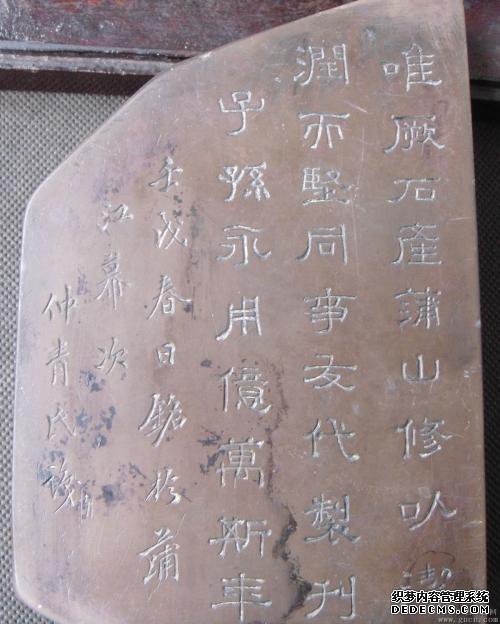 唯厥石產蒲山修以潔
潤而堅同事友代製刊
子孫永用億萬斯年
壬戌春日銘於蒲
江幕次
仲青氏
织梦内容管理系统
DEDECMS.COM